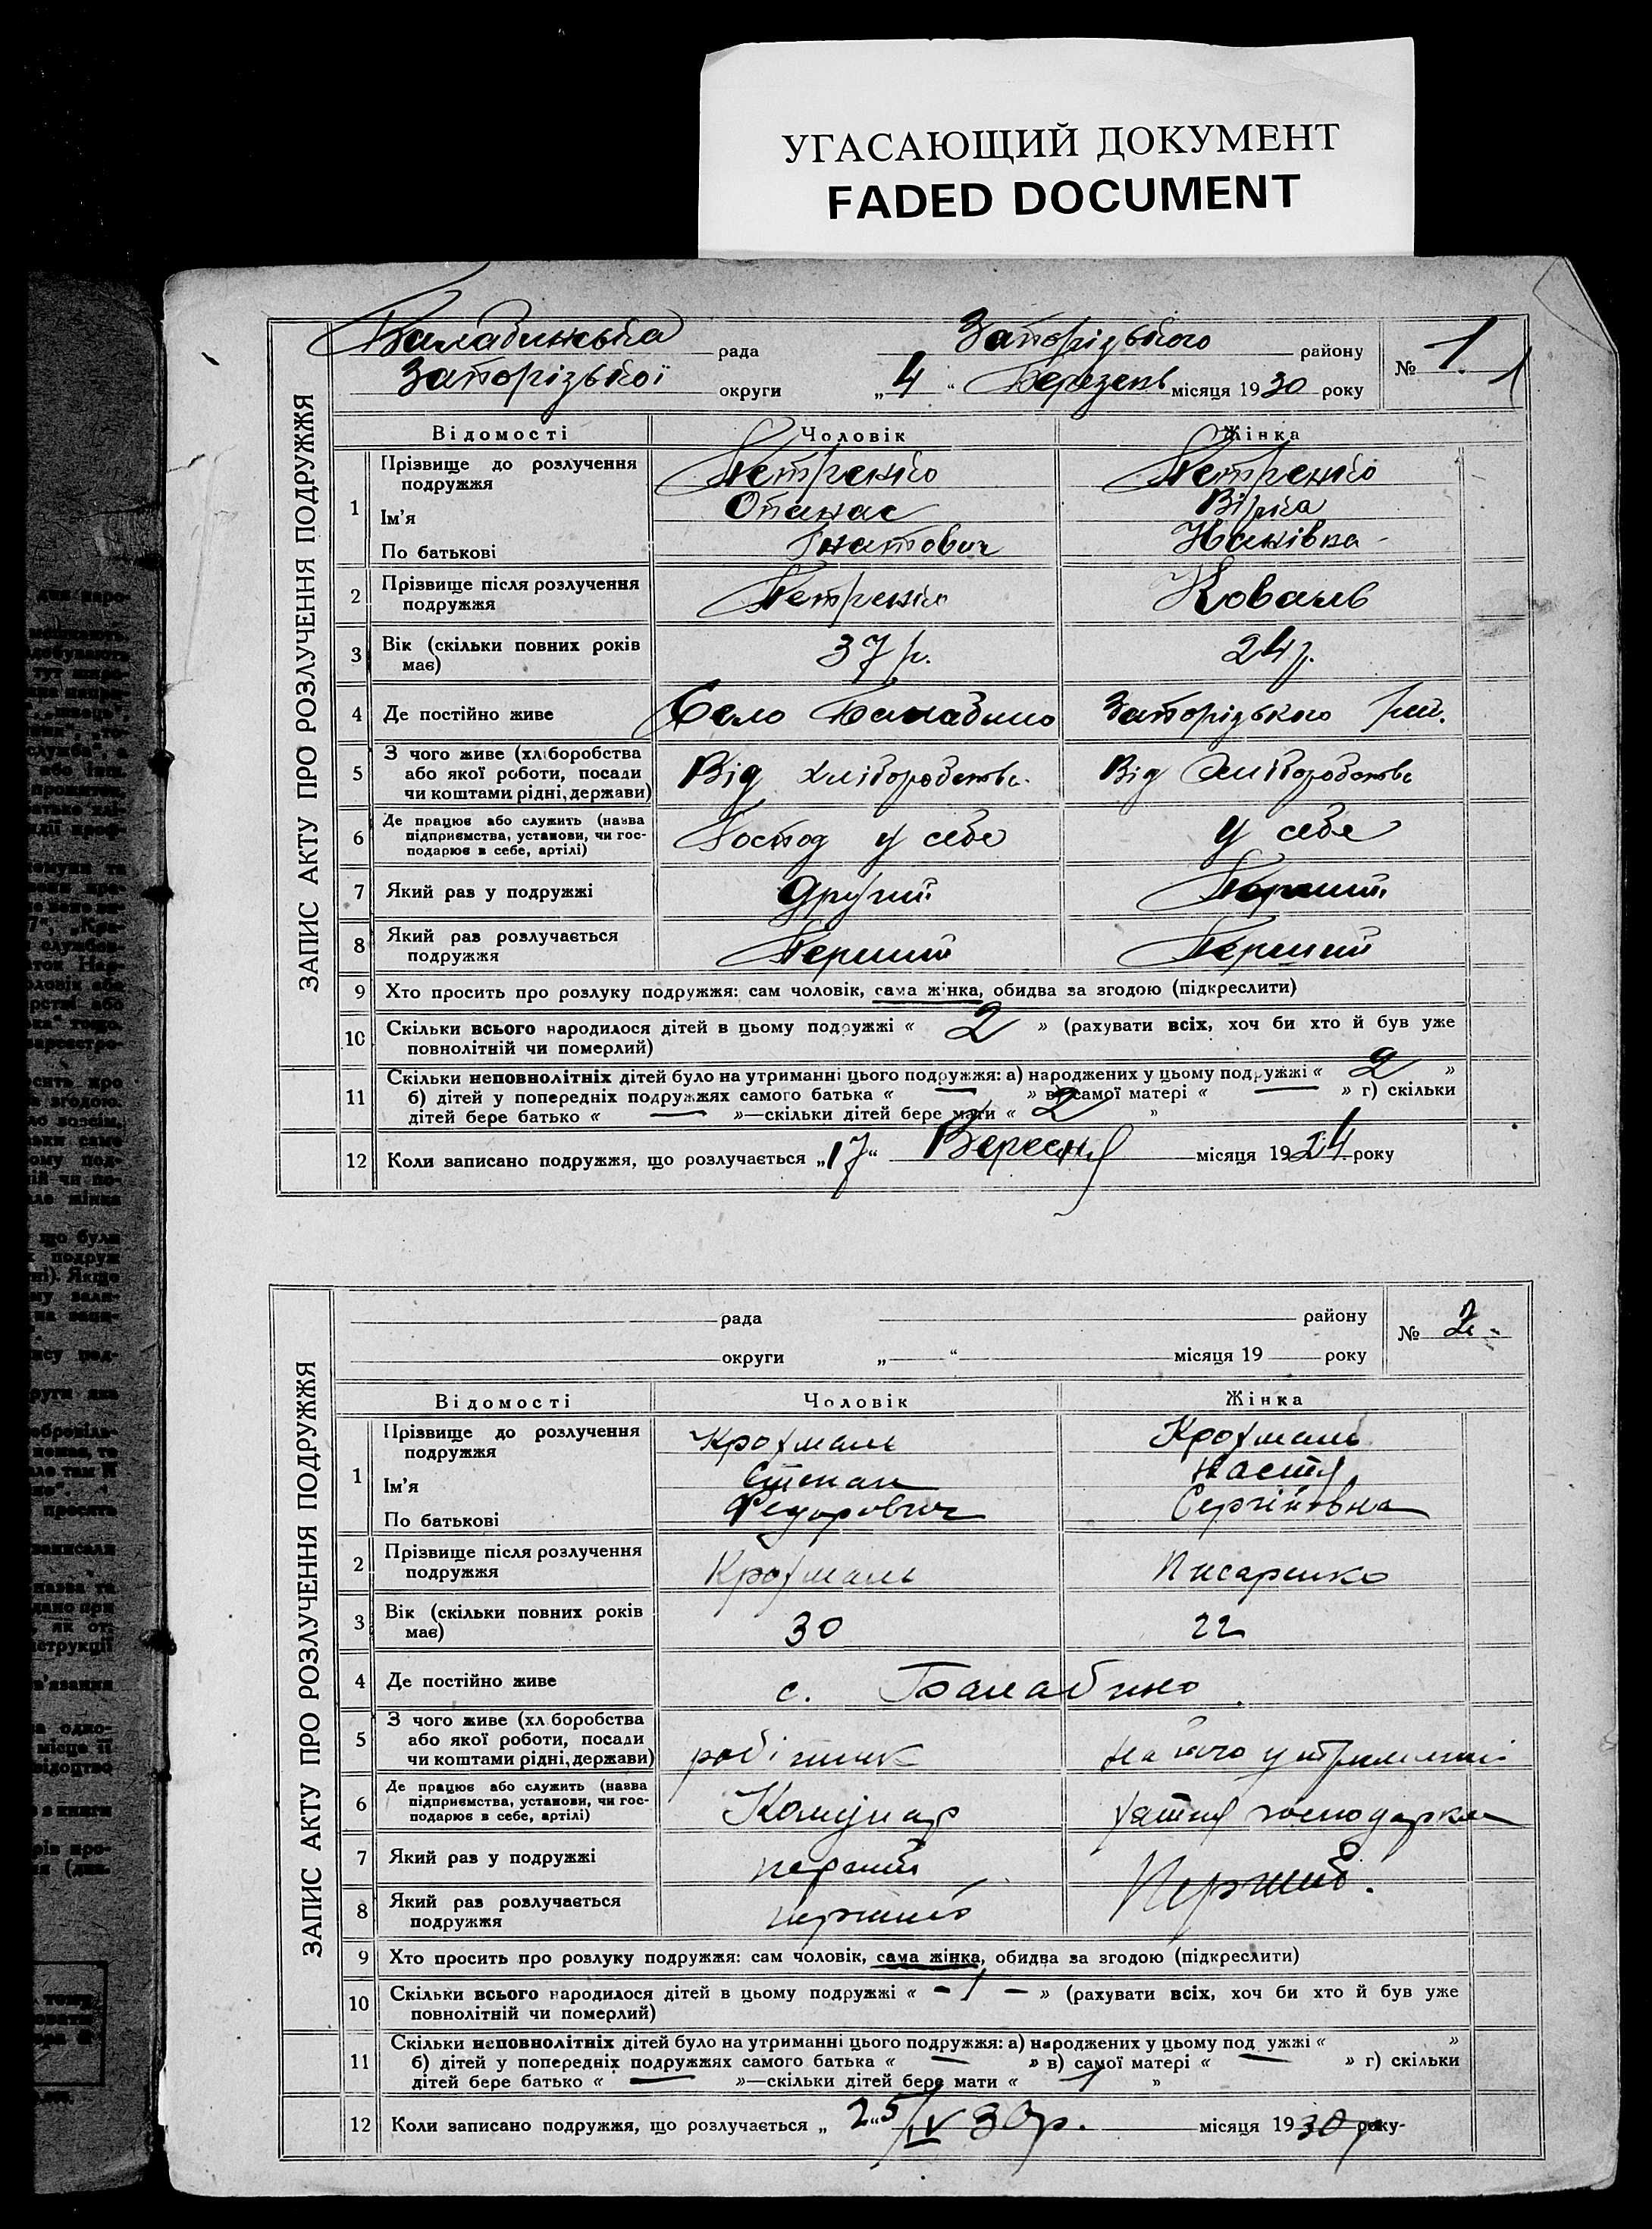 УГАСАЮЩИЙ ДОКУМЕНТ
FADED DOCUMENT
ЗАПИС АКТУ ПРО РОЗЛУЧЕННЯ ПОДРУЖЖЯ
Балабинська рада Запорізького району № 1. 1
Запорізької округи „ 4 “ Березень місяця 1930 року
Відомості Чоловік Жінка
1 Прізвище до розлучення подружжя Петренко Петренко
Ім'я Опанас Вірка
По батькові Гнатович
2 Прізвище після розлучення подружжя Петренко Коваль
3 Вік (скільки повних років має) 37 р. 24 р.
4 Де постійно живе Село Балабино Запорізького рай.
5 З чого живе (хліборобства або якої роботи, посади чи коштами рідні, держави) Від хліборобства Від хліборобства
6 Де працює або служить (назва підприємства, установи, чи господарює в себе, артілі) Господ у себе у себе
7 Який раз у подружжі Другий Перший
8 Який раз розлучається подружжя Перший Перший
9 Хто просить про розлуку подружжя: сам чоловік, сама жінка, обидва за згодою (підкреслити)
10 Скільки всього народилося дітей в цьому подружжі « 2 » (рахувати всіх, хоч би хто й був уже
повнолітній чи померлий)
11 Скільки неповнолітніх дітей було на утриманні цього подружжя: а) народжених у цьому подружжі « 2 »
б) дітей у попередніх подружжях самого батька « — » в) самої матері « — » г) скільки
дітей бере батько « — »—скільки дітей бере мати « 2 »
12 Коли записано подружжя, що розлучається „17“ Вересня місяця 1924 року
ЗАПИС АКТУ ПРО РОЗЛУЧЕННЯ ПОДРУЖЖЯ
рада району № 2.
округи „ “ місяця 19 року
Відомості Чоловік Жінка
1 Прізвище до розлучення подружжя Крохмаль Крохмаль
Ім'я Степан Настя
По батькові Федорович Сергіївна
2 Прізвище після розлучення подружжя Крохмаль Писаренко
3 Вік (скільки повних років має) 30 22
4 Де постійно живе с. Балабино
5 З чого живе (хліборобства або якої роботи, посади чи коштами рідні, держави) робітник на його утриманні
6 Де працює або служить (назва підприємства, установи, чи господарює в себе, артілі) Комунар хатня господарка
7 Який раз у подружжі перший Перший.
8 Який раз розлучається подружжя перший
9 Хто просить про розлуку подружжя: сам чоловік, сама жінка, обидва за згодою (підкреслити)
10 Скільки всього народилося дітей в цьому подружжі « - 1 - » (рахувати всіх, хоч би хто й був уже
повнолітній чи померлий)
11 Скільки неповнолітніх дітей було на утриманні цього подружжя: а) народжених у цьому подружжі « »
б) дітей у попередніх подружжях самого батька « — » в) самої матері « — » г) скільки
дітей бере батько « — »—скільки дітей бере мати « 1 »
12 Коли записано подружжя, що розлучається „ 25/IV 30 р. місяця 1930 року